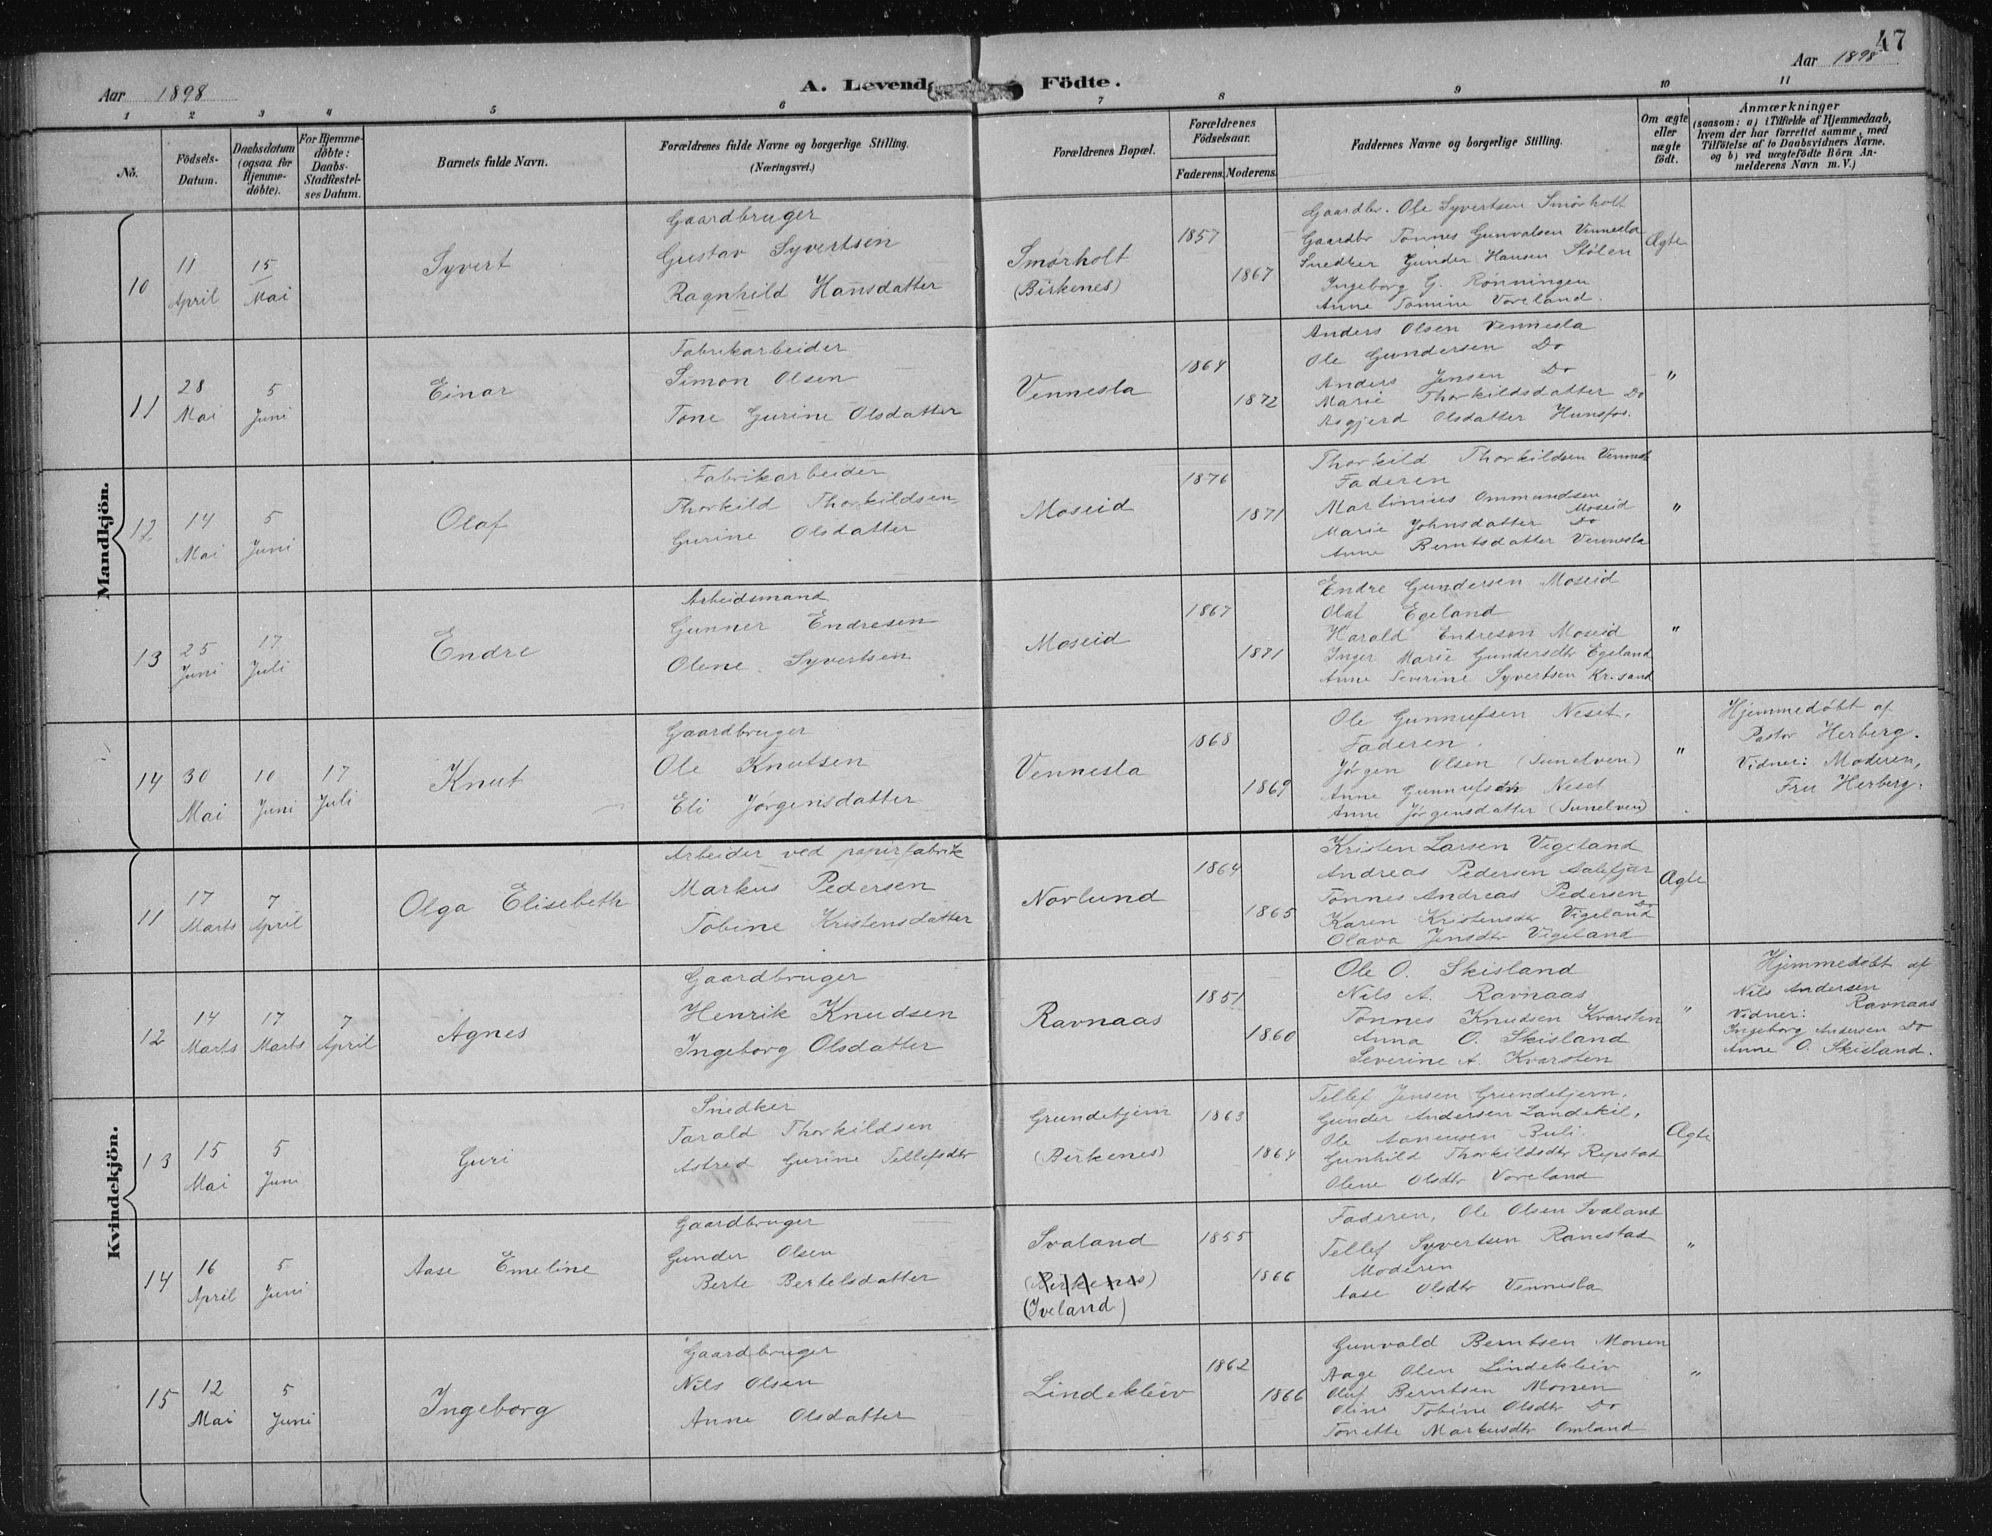 47
Aar 1898
A. Levende Födte.
Aar 1898
1 2 3 4 5 6 7 8 9 10 11
No.
Födsels-
Datum.
Daabsdatum
(ogsaa for
Hjemme-
döbte).
For Hjemme-
döbte:
Daabs-
Stadfæstel-
ses Datum.
Barnets fulde Navn.
Forældrenes fulde Navne og borgerlige Stilling.
(Næringsvei.)
Forældrenes Bopæl.
Forældrenes
Födselsaar.
Faderens. Moderens.
Faddernes Navne og borgerlige Stilling.
Om ægte
eller
uægte
födt.
Anmærkninger
(saasom: a) i Tilfælde af Hjemmedaab,
hvem der har forrettet samme, med
Tilföielse af to Daabsvidners Navne.
og b) ved uægtefödte Börn An-
melderens Navn m. V.)
Mandkjön.
10
11
April
15
Mai
Syvert
Gaardbruger
Gustav Syvertsen
Ragnhild Hansdatter
Smørholt
(Birkenes)
1857
1867
Gaardbr. Ole Syvertsen Smørholt
Gaardbr Tønnes Gunvalsen Vennesla
Snedker Gunder Hansen Stølen
Ingeborg G. Rønningen
Anne Tomine Voreland.
Ægte
11
28
Mai
5
Juni
Einar
Fabrikarbeider
Simon Olsen
Tone Gurine Olsdatter
Vennesla
1864
1872
Anders Olsen Vennesla
Ole Gundersen Do
Anders Jensen Do
Marie Thorkildsdatter Do
Asgjerd Olsdatter Hunsfos.
"
12
14
Mai
5
Juni
Olaf
Fabrikarbeider
Thorkild Thorkildsen
Gurine Olsdatter
Moseid
1876
1871
Thorkild Thorkildsen Vennesla
Faderen
Martinius Ommundsen
Moseid
Marie Johnsdatter Do
Anne Berntsdatter Vennesla
"
13
25
Juni
17
Juli
Endre
Arbeidsmand
Gunner Endresen
Olene Syvertsen
Moseid
1867
1871
Endre Gundersen Moseid
Olaf Egeland
Harald Endresen Moseid
Inger Marie Gundersdtr Egeland
Anne Severine Syvertsen Kr.sand
"
14
30
Mai
10
Juni
17
Juli
Knut
Gaardbruger
Ole Knutsen
Eli Jørgensdatter
Vennesla
1868
1869
Ole Gunnufsen Neset.
Faderen.
Jørgen Olsen (Sunelven)
Anne Gunnufsen Neset
Anne Jørgensdatter (Sunelven)
"
Hjemmedøbt af
Pastor Herberg.
Vidner: Moderen,
Fru Herberg.
Kvindekjön.
11
17
Marts
7
April
Olga Elisebeth
Arbeider ved papirfabrik
Markus Pedersen
Tobine Kristensdatter
Norlund
1864
1865
Kristen Larsen Vigeland
Andreas Pedersen Aalefjær
Tønnes Andreas Pedersen
Do
Karen Kristensdtr Vigeland
Olava Jensdtr Vigeland
Ægte
12
14
Marts
17
Marts
7
April
Agnes
Gaardbruger
Henrik Knudsen
Ingeborg Olsdatter
Ravnaas
1851
1860
Ole O. Skisland
Nils A. Ravnaas
Tønnes Knudsen Kvarsten
Anna O. Skisland
Severine A. Kvarsten
"
Hjemmedøbt af
Nils Andersen
Ravnaas
Vidner:
Ingeborg Andersen Do
Anne O. Skisland.
13
15
Mai
5
Juni
Guri
Snedker
Tarald Thorkildsen
Astred Gurine Tellefsdtr
Grundetjern
(Birkenes)
1863
1864
Tellef Jensen Grundetjern.
Gunder Andersen Landekil.
Ole Aanensen Buli
Gunhild Thorkildsdtr Repstad
Olene Olsdtr Voreland
Ægte
14
16
April
5
Juni
Aase Emeline
Gaardbruger
Gunder Olsen
Berte Bertelsdatter
Svaland
(Birkenes)
(Iveland)
1855
1866
Faderen, Ole Olsen Svaland
Tellef Syvertsen Ranestad
Moderen
Aase Olsdtr Vennesla
"
15
12
Mai
5
Juni
Ingeborg
Gaardbruger
Nils Olsen
Anne Olsdatter
Lindekleiv
1862
1866
Gunvald Berntsen Monen
Aage Olen Lindekleiv
Oluf Berntsen Monen
Oline Tobine Olsdtr Do
Tonette Markusdtr Omland
"